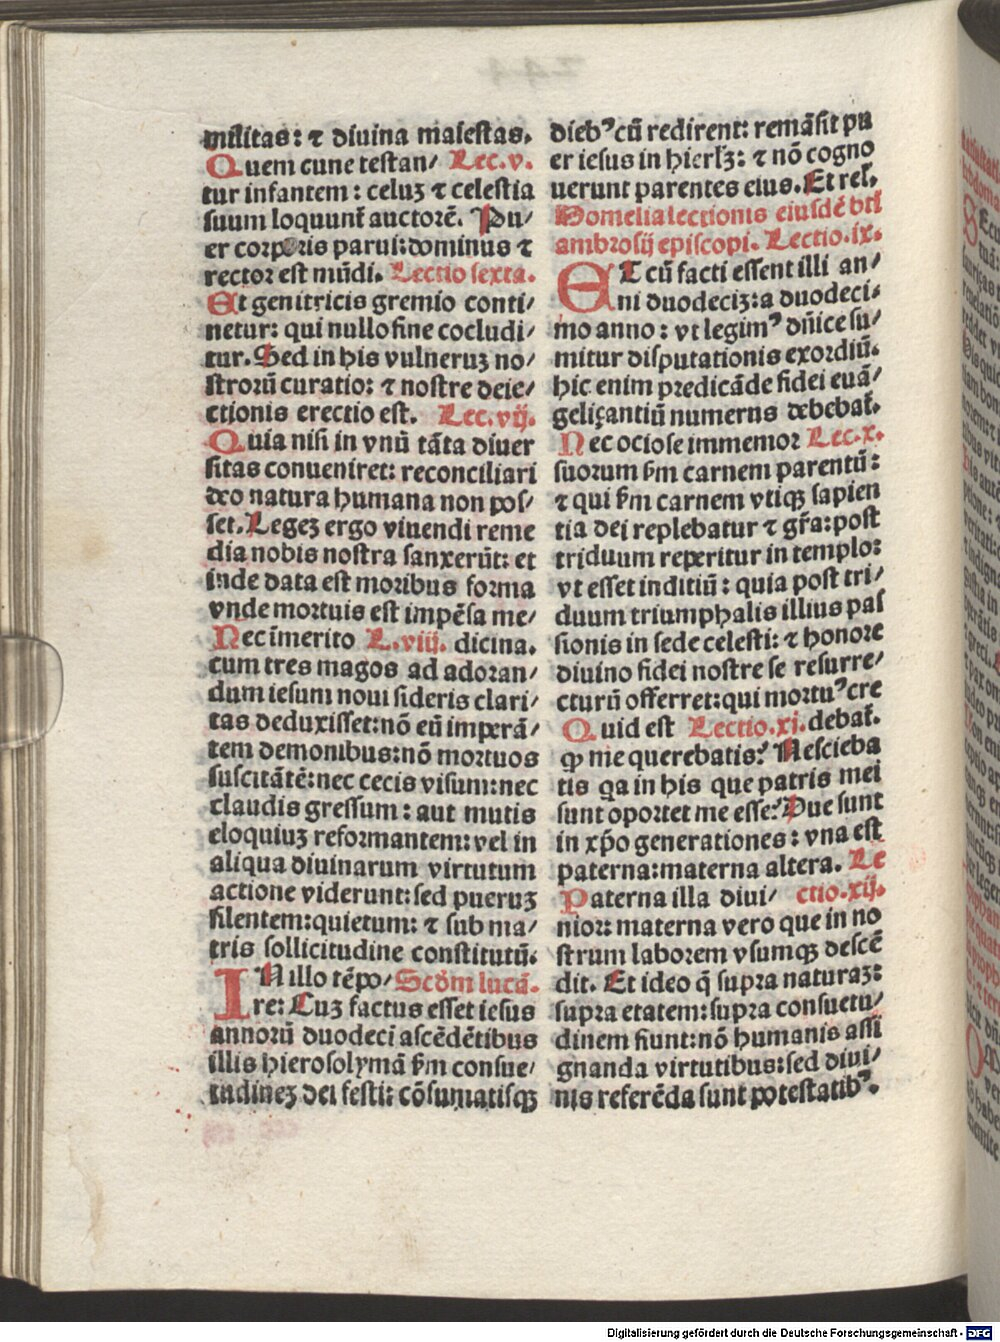 militas: ⁊ diuina maiestas.
Quem cune testan/ Lec.v.
tur infantem: celuꝫ ⁊ celestia
suum loquunt̄ auctorē. Pu/
er corporis parui: dominus ⁊
rector est mūdi. Lectio sexta.
Et genitricis gremio conti/
netur: qui nullo fine cocludi/
tur. Sed in his vulneruꝫ no/
strorū curatio: ⁊ nostre deie/
ctionis erectio est. Lec.vij.
Quia nisi in vnū tāta diuer
sitas conueniret: reconciliari
deo natura humana non pos/
set. Legeꝫ ergo viuendi reme
dia nobis nostra sanxerūt: et
inde data est moribus forma
vnde mortuis est impēsa me/
Nec īmerito L.viij. dicina.
cum tres magos ad adoran/
dum iesum noui sideris clari/
tas deduxisset: nō eū imperā/
tem demonibus: nō mortuos
suscitātē: nec cecis visum: nec
claudis gressum: aut mutis
eloquiuꝫ reformantem: vel in
aliqua diuinarum virtutum
actione viderunt: sed pueruꝫ
silentem: quietum: ⁊ sub ma/
tris sollicitudine constitutū.
IN illo tēpo/ Scd̄m lucā.
re: Cuꝫ factus esset iesus
annorū duodeci ascēdētibus
illis hierosolymā ẜm consue/
tudineꝫ dei festi: cōsumatisqꝫ
dieb⁹ cū redirent: remāsit pu
er iesus in hierl̄ꝫ: ⁊ nō cogno
uerunt parentes eius. Et rel̄.
Homelia lectionis eiusdē bt̄i
ambrosij episcopi. Lectio.ix.
ET cū facti essent illi an/
ni duodeciꝫ: a duodeci/
mo anno: vt legim⁹ dn̄ice su/
mitur disputationis exordiū.
hic enim predicāde fidei euā/
gelizantiū numerns debebat̄.
Nec ociose immemor Lec.x.
suorum ẜm carnem parentū:
⁊ qui ẜm carnem vtiqꝫ sapien
tia dei replebatur ⁊ gr̄a: post
triduum reperitur in templo:
vt esset inditiū: quia post tri/
duum triumphalis illius pas
sionis in sede celesti: ⁊ honore
diuino fidei nostre se resurre/
cturū offerret: qui mortu⁹ cre
Quid est Lectio.xj. debat̄.
ꝙ me querebatis? Nescieba
tis qa in his que patris mei
sunt oportet me esse? Due sunt
in xp̄o generationes: vna est
paterna: materna altera. Le
Paterna illa diui/ ctio.xij.
nior: materna vero que in no
strum laborem vsumqꝫ descē
dit. Et ideo q̄ supra naturaꝫ:
supra etatem: supra consuetu/
dinem fiunt: nō humanis assi
gnanda virtutibus: sed diui/
nis referēda sunt potestatib⁹.
Digitalisierung gefördert durch die Deutsche Forschungsgemeinschaft - DFG